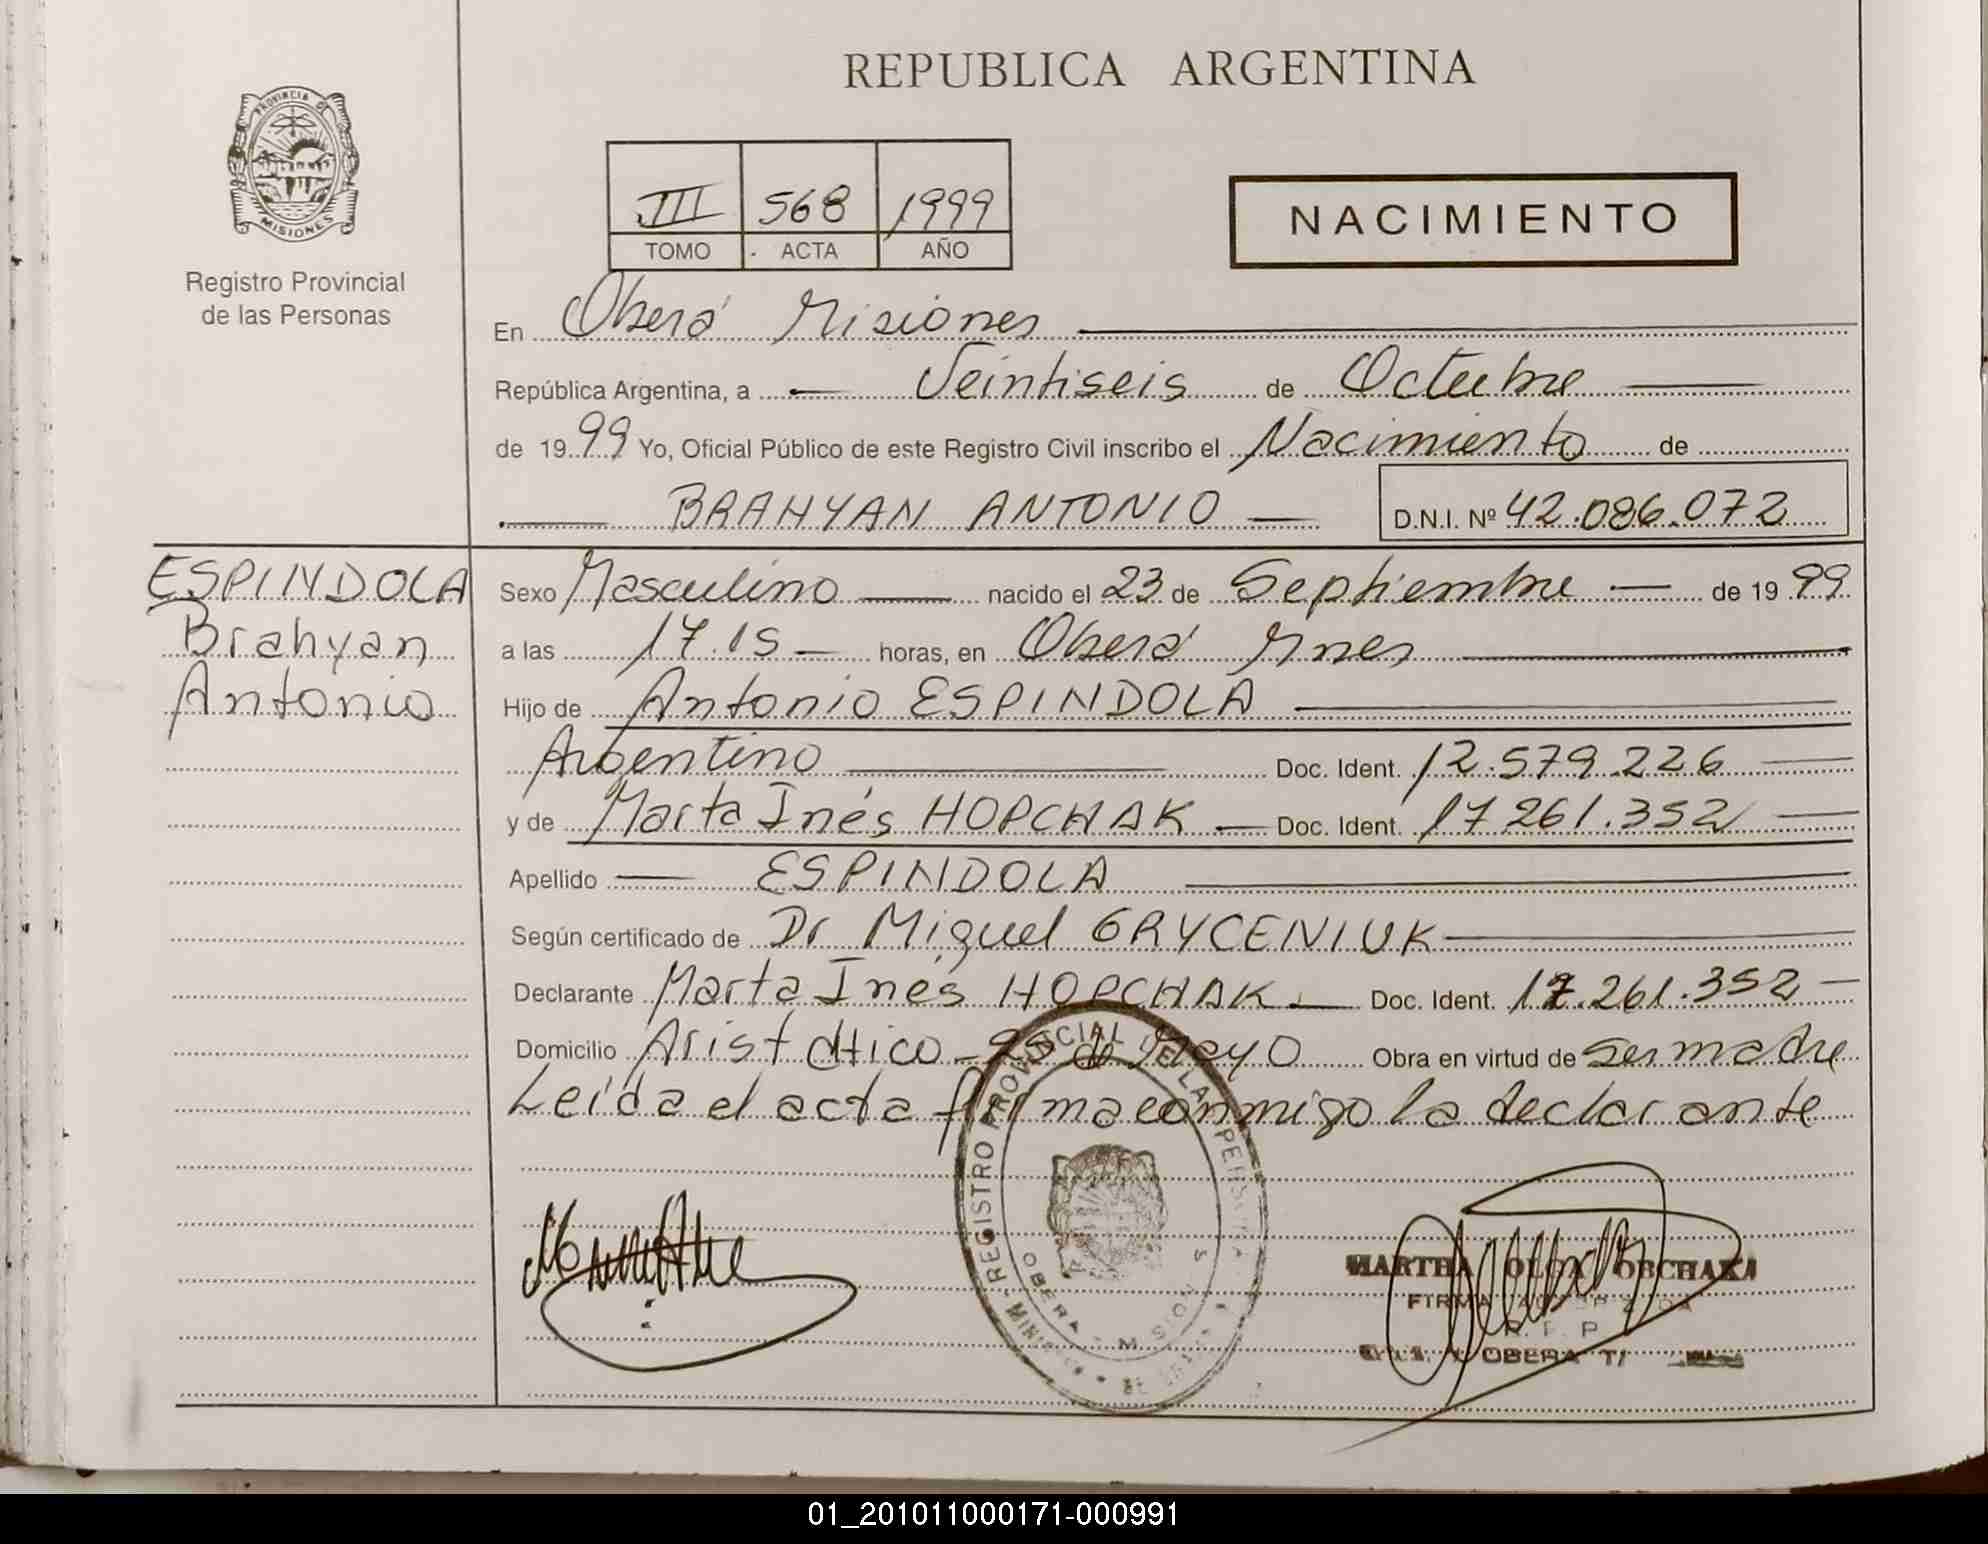 REPUBLICA ARGENTINA
PROVINCIA DE
MISIONES
Registro Provincial
de las Personas
III 568 1999
TOMO ACTA AÑO
NACIMIENTO
En Oberá Misiones
República Argentina, a Veintiseis de Octubre
de 1999 Yo, Oficial Público de este Registro Civil inscribo el Nacimiento de
BRAHYAN ANTONIO D.N.I. Nº 42.086.072
ESPINDOLA
Brahyan
Antonio
Sexo Masculino nacido el 23 de Septiembre de 1999
a las 17.15 horas, en Oberá Mnes
Hijo de Antonio ESPINDOLA
Argentino Doc. Ident. 12.579.226
y de Marta Inés HOPCHAK Doc. Ident. 17.261.352
Apellido ESPINDOLA
Según certificado de Dr Miguel GRYCENIUK
Declarante Marta Inés HOPCHAK Doc. Ident. 17.261.352
Domicilio Arist 25 de Mayo Obra en virtud de ser madre
Leída el acta firma conmigo la declarante
REGISTRO PROVINCIAL DE LAS PERSONAS
OBERA - MISIONES
MARTHA
FIRMA AUTORIZADA
R. P. P.
OBERA
01_201011000171-000991